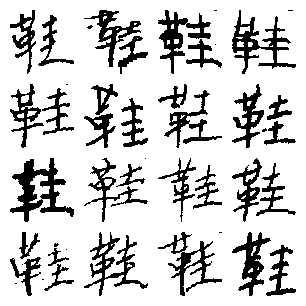 鞋鞋鞋鞋
鞋鞋鞋鞋
鞋鞋鞋鞋
鞋鞋鞋鞋